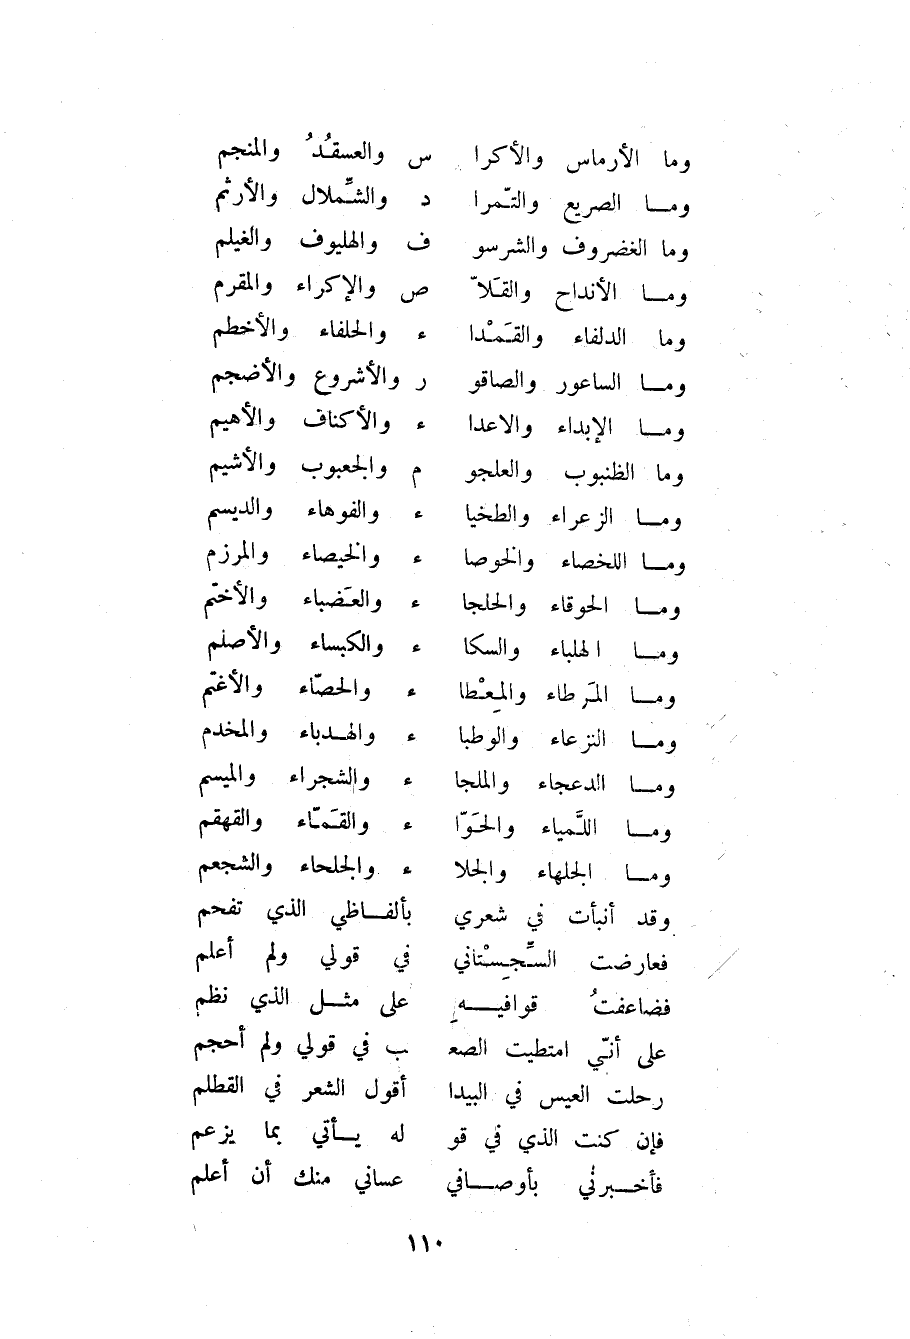 وما الأرماس والأكرا س والعسقُدُ والمنجم
ومـــا الصريع والتّمرا د والشِّملال والأرثم
وما الغضروف والشرسو ف والهليوف والغيلم
ومـــا الأنداح والقَلاّ ص والإكراء والمقرم
وما الدلفاء والقَمْدا ء والحلفاء والأخطم
ومـــا الساعور والصاقو ر والأشروع والأضجم
ومـــا الإبداء والاعدا ء والأكناف والأهيم
وما الظنبوب والعلجو م والجعبوب والأشيم
ومـــا الزعراء والطخيا ء والفوهاء والديسم
ومـــا اللخصاء والخوصا ء والخيصاء والمرزم
ومـــا الحوقاء والخلجا ء والعَضباء والأختم
ومـــا الهلباء والسكا ء والكبساء والأصلم
ومـــا المَرطاء والمِعْطا ء والحصّاء والأغتم
ومـــا النزعاء والوطبا ء والهـدباء والمخدم
ومـــا الدعجاء والملجا ء والشجراء والميسم
ومـــا اللَّمياء والحَوّا ء والقَمّاء والقهقم
ومـــا الجلهاء والجلا ء والجلحاء والشجعم
وقد أنبأت في شعري بألفـــاظي الذي تفحم
فعارضت السِّجِسْتاني في قولي ولم أعلم
فضاعفتُ قوافيـــهِ على مثـــل الذي نظم
على أنّي امتطيت الصعـ ـب في قولي ولم أحجم
رحلت العيس في البيدا أقول الشعر في القطلم
فإن كنت الذي في قو له يـــأتي بما يزعم
فأخـــبرني بأوصـــافي عساني منك أن أعلم
١١٠